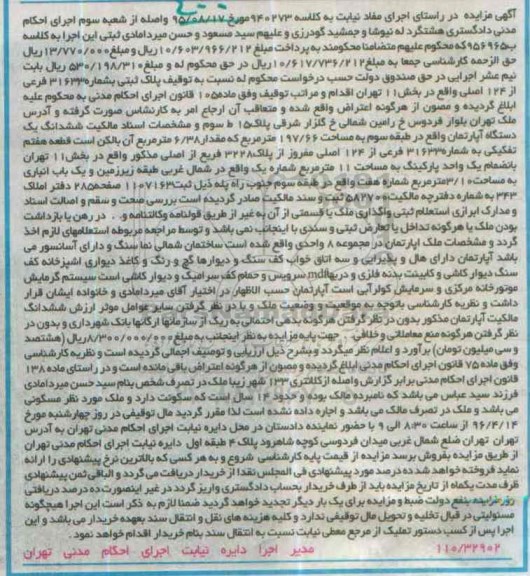 آگهی مزایده در راستای اجرای مفاد نیابت به کلاسه ۹۴۰۲۷۳ مورخ ۹۵/۰۸/۱۷ واصله از شعبه سوم اجرای
مدنی دادگستری هشتگرد له نیوشا و جمشید گودرزی و علیهم سید مسعود و حسن میردامادی ثبتی این اجرا به کلاسه
۹۵۶۹۶۵ که محکوم علیهم متضامنا محکومند به پرداخت مبلغ ۱۰/۶۰۳/۹۶۶/۲۱۲ ریال و مبلغ ۱۳/۷۷۰/۰۰۰ ریال
حق الزحمه کارشناسی جمعا به مبلغ ۱۰/۶۱۷/۷۳۶/۲۱۲ ریال در حق محکوم له و مبلغ ۵۳۰/۱۹۸/۳۱۰ ریال بابت
نیم عشر اجرایی در حق صندوق دولت حسب درخواست محکوم له نسبت به توقیف پلاک ثبتی بشماره ۳۱۶۳۳ فرعی
از ۱۲۴ اصلی واقع در بخش ۱۱ تهران اقدام و مراتب توقیف وفق ماده ۱۰۵ قانون اجرای احکام مدنی به محکوم علیه
ابلاغ گردیده و مصون از هرگونه اعتراض واقع شده و متعاقب آن ارجاع امر به کارشناس صورت گرفته و آدرس
ملک تهران بلوار فردوس خ رامین شمالی خ گلزار شرقی پلاک ۱۵ ط سوم و مشخصات اسناد مالکیت ششدانگ یک
دستگاه آپارتمان واقع در طبقه سوم به مساحت ۱۹۷/۶۶ مترمربع که مقدار ۶/۳۸ مترمربع آن بالکن است قطعه هفتم
تفکیکی به شماره ۳۱۶۳۳ فرعی از ۱۲۴ اصلی مفروز از پلاک ۳۲۲۸ فرعی از اصلی مذکور واقع در بخش ۱۱ تهران
بانضمام یک واحد پارکینگ به مساحت ۱۱ مترمربع شماره یک واقع در شمال غربی طبقه زیرزمین و یک باب انباری
به مساحت ۳/۱۰ مترمربع شماره هفت واقع در طبقه سوم جنوب راه پله ذیل ثبت ۱۱۰۷۱۶۳ صفحه ۲۸۵ دفتر املاک
۳۴۳ به شماره دفترچه مالکیت ۵۸۲۷۰۱ ثبت و سند مالکیت صادر گردیده است بررسی صحت و سقم و اصالت اسناد
و مدارک ابرازی استعلام ثبتی واگذاری ملک یا قسمتی از آن به غیر از طریق قولنامه وکالتنامه و.. در رهن یا بازداشت
بودن ملک یا هرگونه تداخل یا تعارض ثبتی و سندی با اینجانب نمی باشد و توسط مراجعه مربوطه استعلامهای لازم اخذ
گردد و مشخصات ملک اپارتمان در مجموعه ۸ واحدی واقع شده است ساختمان شمالی نما سنگ و دارای آسانسور می
باشد آپارتمان دارای هال و پذیرایی و سه اتاق خواب کف سنگ و دیوارها گچ و رنگ و کاغذ دیواری اشپزخانه کف
سنگ دیوار کاشی و کابینت بدنه فلزی و درب mdf سرویس و حمام کف سرامیک و دیوار کاشی است سیستم گرمایش
موتورخانه مرکزی و سرمایش کولرآبی است آپارتمان حسب الاظهار در اختیار آقای میردامادی و خانواده ایشان قرار
داشت و نظریه کارشناسی باتوجه به موقعیت و وضعیت ملک و با در نظر گرفتن سایر عوامل موثر ارزش ششدانگ
مالکیت آپارتمان مذکور بدون در نظر گرفتن هرگونه بدهی احتمالی به ریک از سازمانها ارگانها بانک شهرداری و بدون در
نظر گرفتن هرگونه منع معاملاتی و خلافی... جهت پایه مزایده به نظر اینجانب به مبلغ ۸/۳۰۰/۰۰۰/۰۰۰ ریال (هشتصد
و سی میلیون تومان) برآورد و اعلام نظر میگردد و بشرح ذیل ارزیابی و توصیف اجمالی گردیده است و نظریه کارشناسی
وفق ماده ۷۵ قانون اجرای احکام مدنی ابلاغ گردیده و مصون از هرگونه اعتراض باقی مانده است و در راستای ماده ۱۳۸
قانون اجرای احکام مدنی برابر گزارش واصله از کلانتری ۱۳۳ شهر زیبا ملک در تصرف شخص بنام سید حسن میردامادی
فرزند سید عباس می باشد که نامبرده مالک بوده و حدود ۱۴ سال است که سکونت دارد و ملک مورد نظر مسکونی
می باشد و ملک در تصرف مالک می باشد و اجاره داده نشده است لذا مقرر گردید مال توقیفی در روز چهارشنبه مورخ
۹۶/۴/۱۴ از ساعت ۸:۳۰ الی ۹ با حضور نماینده دادستان در محل دایره نیابت اجرای احکام مدنی تهران به آدرس
تهران تهران ضلع شمال غربی میدان فردوسی کوچه شاهرود پلاک ۴ طبقه اول دایره نیابت اجرای احکام مدنی تهران
از طریق مزایده بفروش برسد مزایده از قیمت پایه کارشناسی شروع و به هر کسی که بالاترین نرخ پیشنهادی را ارائه
نماید فروخته خواهد شد ده درصد مورد پیشنهادی فی المجلس نقدا از خریدار دریافت می گردد و الباقی ثمن پیشنهادی
ظرف مدت یکماه از تاریخ مزایده باید از طرف خریدار بحساب دادگستری واریز گردد در غیر اینصورت ده درصد دریافتی
روز مزایده بنفع دولت ضبط و مزایده برای یک بار دیگر تجدید خواهد گردید ضمنا لازم به ذکر است این اجرا هیچگونه
مسئولیتی در قبال تخلیه و تحویل مال توقیفی ندارد و کلیه هزینه های نقل و انتقال سند بعهده خریدار می باشد و این
اجرا پس از کسب دستور تملیک از مرجع معطی نیابت نسبت به انتقال سند بنام خریدار اقدام خواهد نمود.
۱۱۰/۳۲۹۰۲ مدیر اجرا دایره نیابت اجرای احکام مدنی تهران